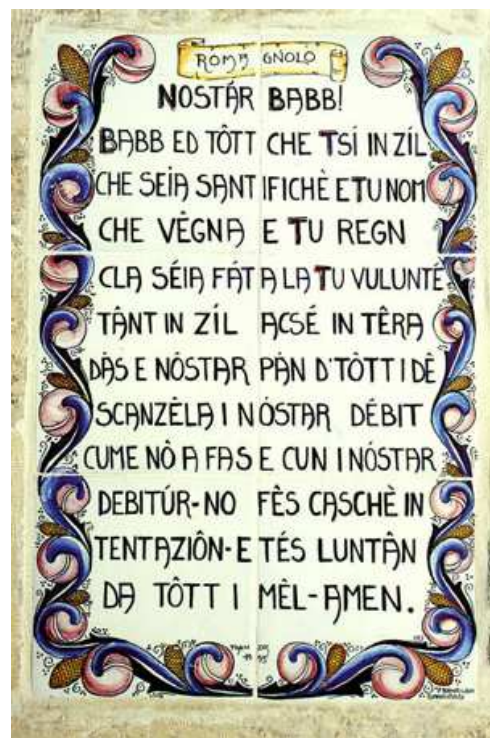 ROMAGNOLO
NOSTÁR BABB!
BABB ED TÔTT CHE TSÍ IN ZÍL
CHE SEÍA SANTIFICHÈ E TU NOM
CHE VÉGNA E TU REGN
CLA SÉIA FÁT A LA TU VULUNTÉ
TÂNT IN ZÍL ACSÉ IN TÊRA
DÀS E NÓSTAR PÀN D'TÔTT I DÊ
SCANZÈLA I NÓSTAR DÉBIT
CUME NÔ A FAS E CUN I NÓSTAR
DEBITÚR-NO FÊS CASCHÈ IN
TENTAZIÔN-E TÉS LUNTÂN
DA TÔTT I MÈL-AMEN.